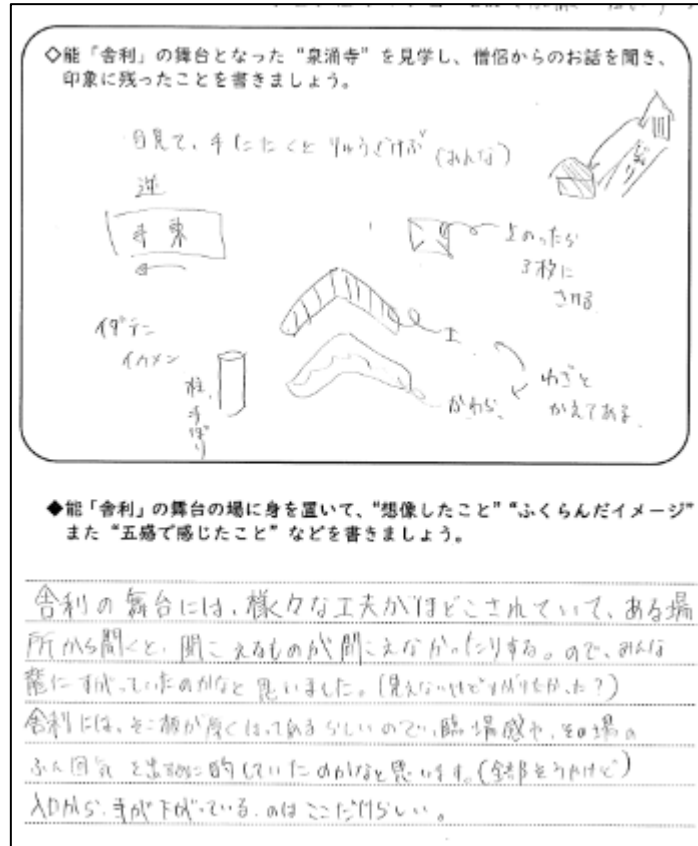 ◇能「舎利」の舞台となった“泉涌寺”を見学し、僧侶からのお話を聞き、
印象に残ったことを書きましょう。
目見て、手たたくと りゅうさけぶ (みんな)
逆
上のったら
3枚に
さける
イダテン
イケメン
土
わざと
かえてある
かわら
柱、手ぼり
◆能「舎利」の舞台の場に身を置いて、“想像したこと”“ふくらんだイメージ”
また“五感で感じたこと”などを書きましょう。
舎利の舞台には、様々な工夫がほどこされていて、ある場
所から聞くと、聞こえるものが聞こえなかったりする。ので、みんな
龍にすがっていたのかなと思いました。(見えないけどすがりたかった?)
舎利には、そこ板が厚くはってあるらしいので、臨場感や、その場の
ふん囲気を
のかなと思います。(全部そうやけど)
入口から、下がっている、のはここだけらしい。